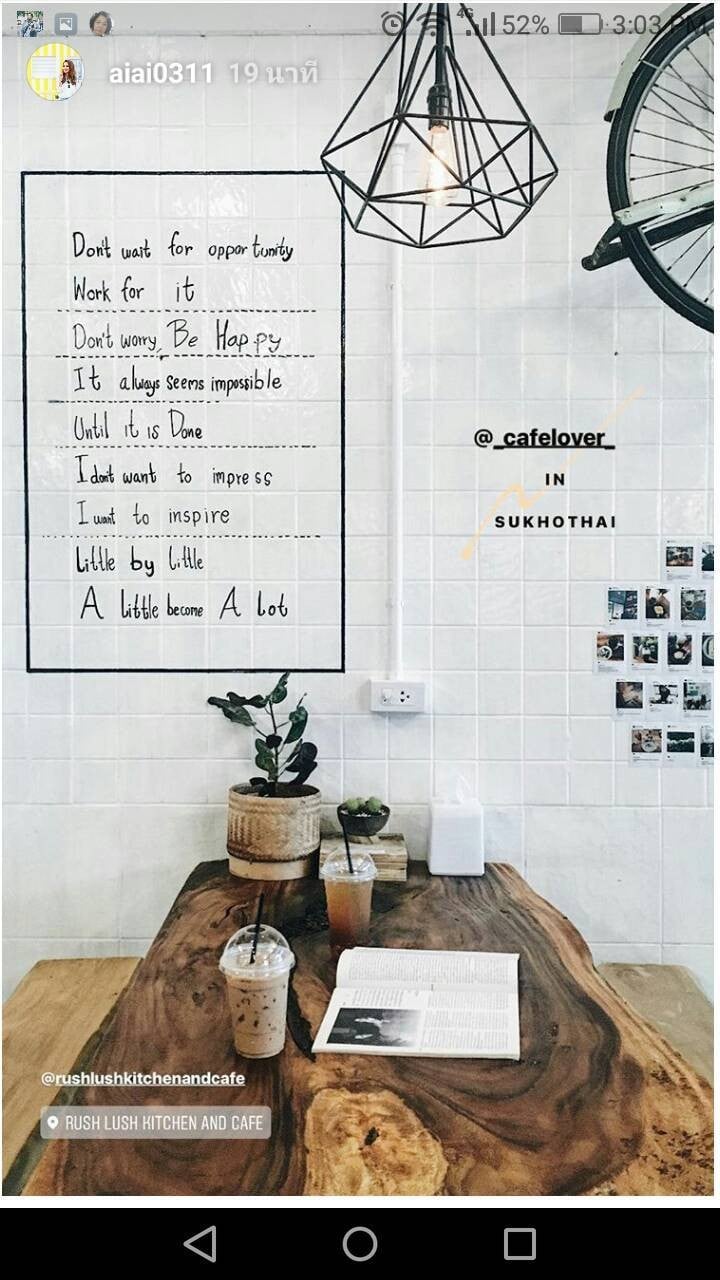 4G 52% 3:03 PM
aiai0311 19 นาที
Don't wait for opportunity
Work for it
Don't worry, Be Happy
It always seems impossible
Until it is Done
I don't want to impress
I want to inspire
Little by little
A little become A lot
@_cafelover_
IN
SUKHOTHAI
@rushlushkitchenandcafe
RUSH LUSH KITCHEN AND CAFE